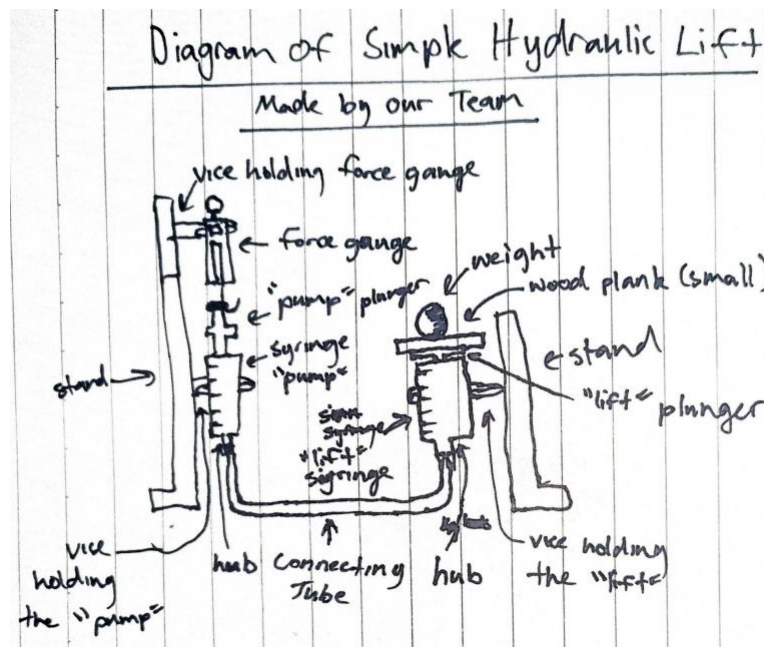 Diagram of Simple Hydraulic Lift
Made by our Team
vice holding force gauge
force gauge
"pump" plunger
syringe
"pump"
stand
weight
wood plank (small)
stand
"lift" plunger
syringe
"lift"
sigringe
vice
holding
the "pump"
hub
Connecting
Tube
hub
vice holding
the "lift"